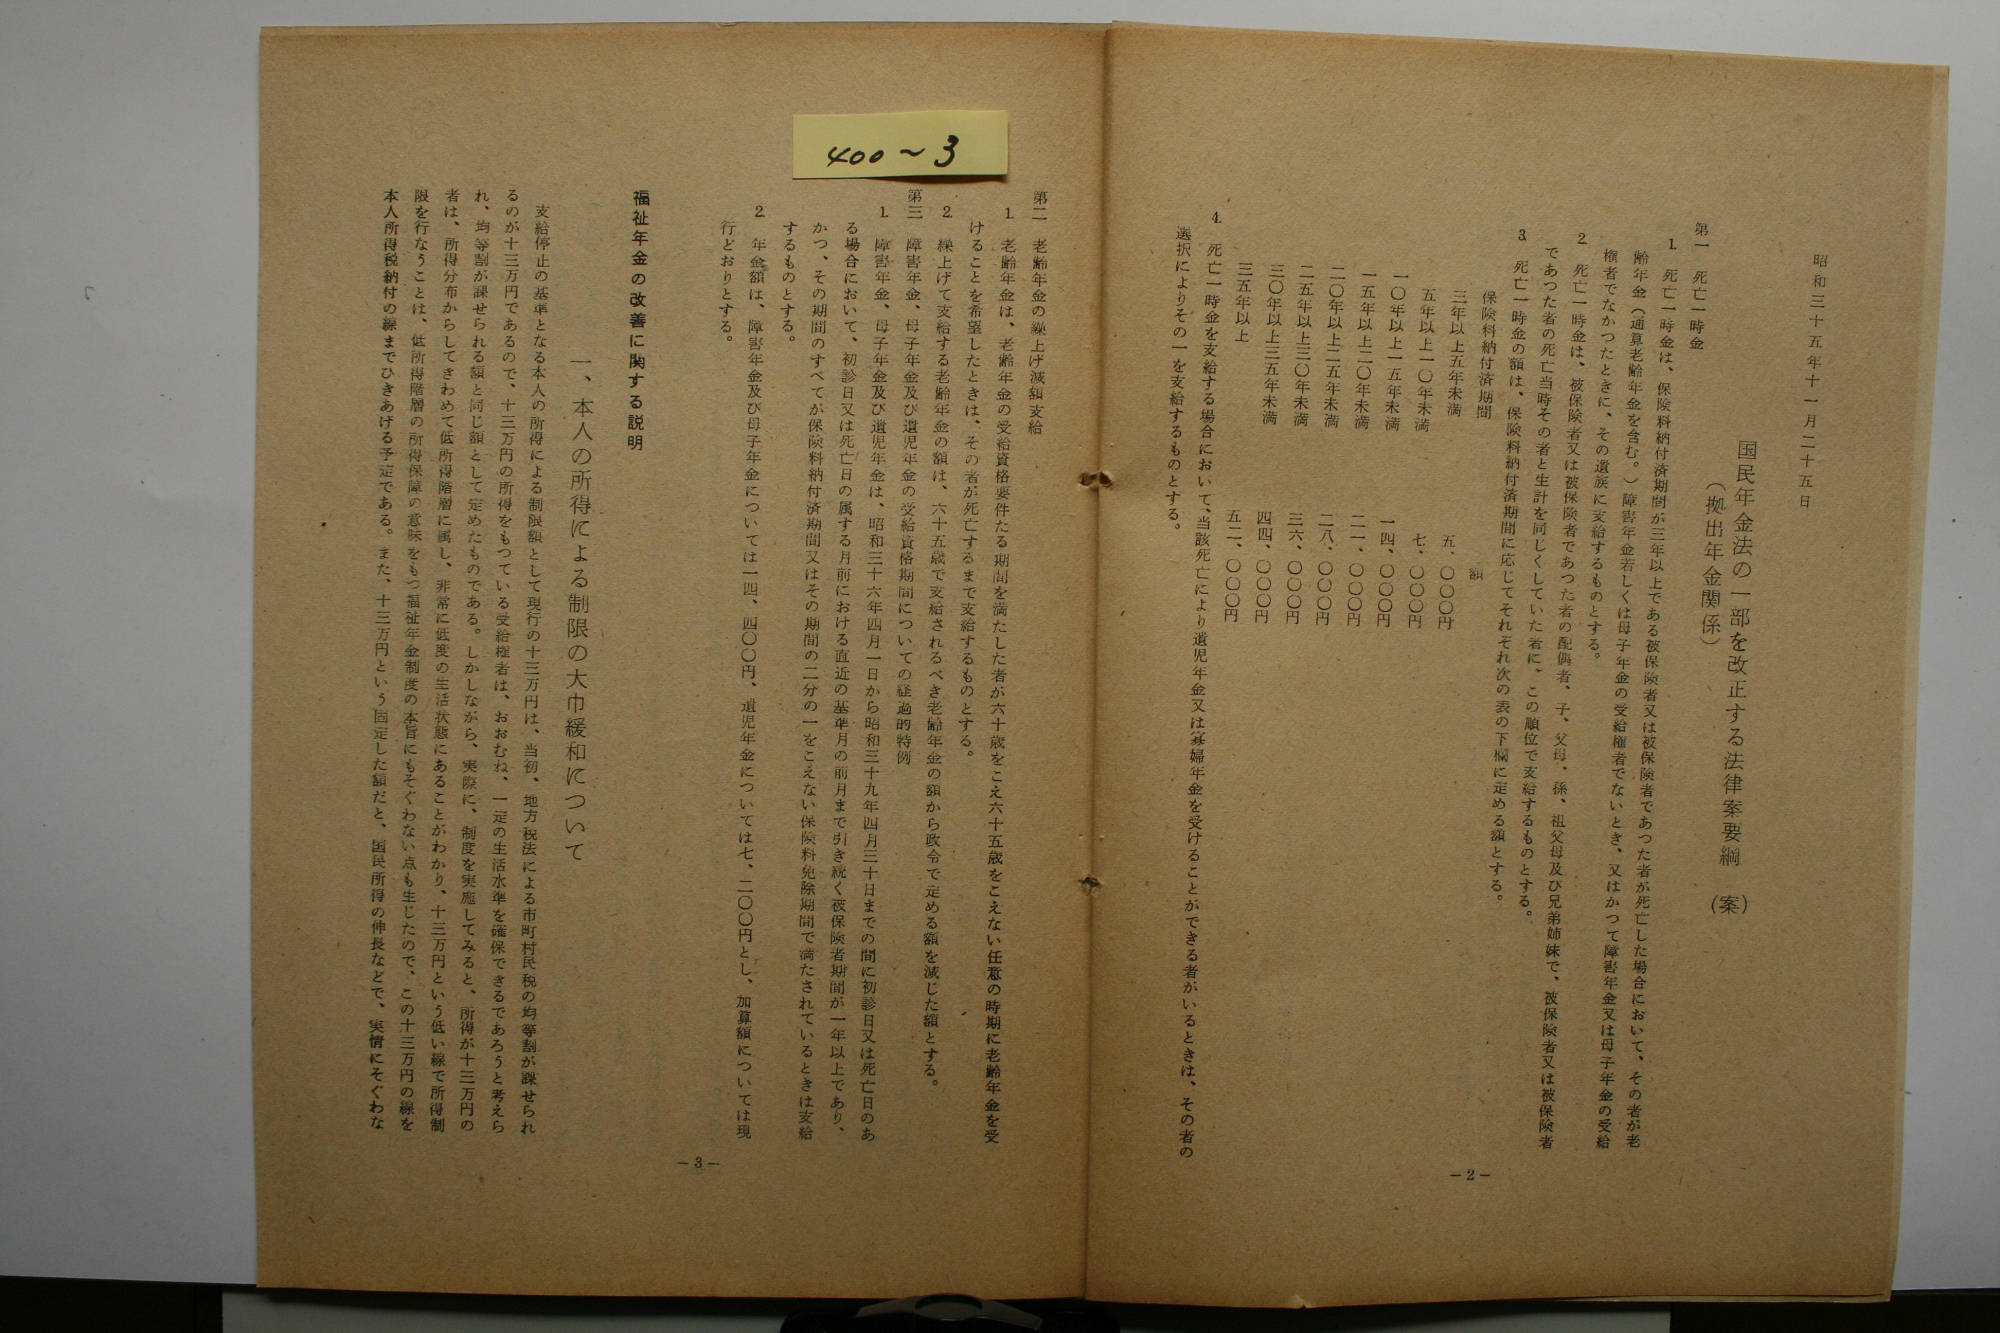 昭和三十五年十一月二十五日
国民年金法の一部を改正する法律案要綱　（案）
（拠出年金関係）
第一　死亡一時金
1.　死亡一時金は、保険料納付済期間が三年以上である被保険者又は被保険者であつた者が死亡した場合において、その者が老
齢年金（通算老齢年金を含む。）障害年金若しくは母子年金の受給権者でないとき、又はかつて障害年金又は母子年金の受給
権者でなかつたときに、その遺族に支給するものとする。
2.　死亡一時金は、被保険者又は被保険者であつた者の配偶者、子、父母、孫、祖父母及び兄弟姉妹で、被保険者又は被保険者
であつた者の死亡当時その者と生計を同じくしていた者に、この順位で支給するものとする。
3.　死亡一時金の額は、保険料納付済期間に応じてそれぞれ次の表の下欄に定める額とする。
保険料納付済期間　額
三年以上五年未満　五、〇〇〇円
五年以上一〇年未満　七、〇〇〇円
一〇年以上一五年未満　一四、〇〇〇円
一五年以上二〇年未満　二一、〇〇〇円
二〇年以上二五年未満　二八、〇〇〇円
二五年以上三〇年未満　三六、〇〇〇円
三〇年以上三五年未満　四四、〇〇〇円
三五年以上　五二、〇〇〇円
4.　死亡一時金を支給する場合において、当該死亡により遺児年金又は寡婦年金を受けることができる者がいるときは、その者の
選択によりその一を支給するものとする。
－2－
400～3
第二　老齢年金の繰上げ減額支給
1.　老齢年金は、老齢年金の受給資格要件たる期間を満たした者が六十歳をこえ六十五歳をこえない任意の時期に老齢年金を受
けることを希望したときは、その者が死亡するまで支給するものとする。
2.　繰上げて支給する老齢年金の額は、六十五歳で支給されるべき老齢年金の額から政令で定める額を減じた額とする。
第三　障害年金、母子年金及び遺児年金の受給資格期間についての経過的特例
1.　障害年金、母子年金及び遺児年金は、昭和三十六年四月一日から昭和三十九年四月三十日までの間に初診日又は死亡日のあ
る場合において、初診日又は死亡日の属する月前における直近の基準月の前月まで引き続く被保険者期間が一年以上であり、
かつ、その期間のすべてが保険料納付済期間又はその期間の二分の一をこえない保険料免除期間で満たされているときは支給
するものとする。
2.　年金額は、障害年金及び母子年金については一四、四〇〇円、遺児年金については七、二〇〇円とし、加算額については現
行どおりとする。
福祉年金の改善に関する説明
一、本人の所得による制限の大巾緩和について
支給停止の基準となる本人の所得による制限額として現行の十三万円は、当初、地方税法による市町村民税の均等割が課せられ
るのが十三万円であるので、十三万円の所得をもつている受給権者は、おおむね、一定の生活水準を確保できるであろうと考えら
れ、均等割が課せられる額と同じ額として定めたものである。しかしながら、実際に、制度を実施してみると、所得が十三万円の
者は、所得分布からしてきわめて低所得階層に属し、非常に低度の生活状態にあることがわかり、十三万円という低い線で所得制
限を行なうことは、低所得階層の所得保障の意味をもつ福祉年金制度の本旨にもそぐわない点も生じたので、この十三万円の線を
本人所得税納付の線までひきあげる予定である。また、十三万円という固定した額だと、国民所得の伸長などで、実情にそぐわな
－3－